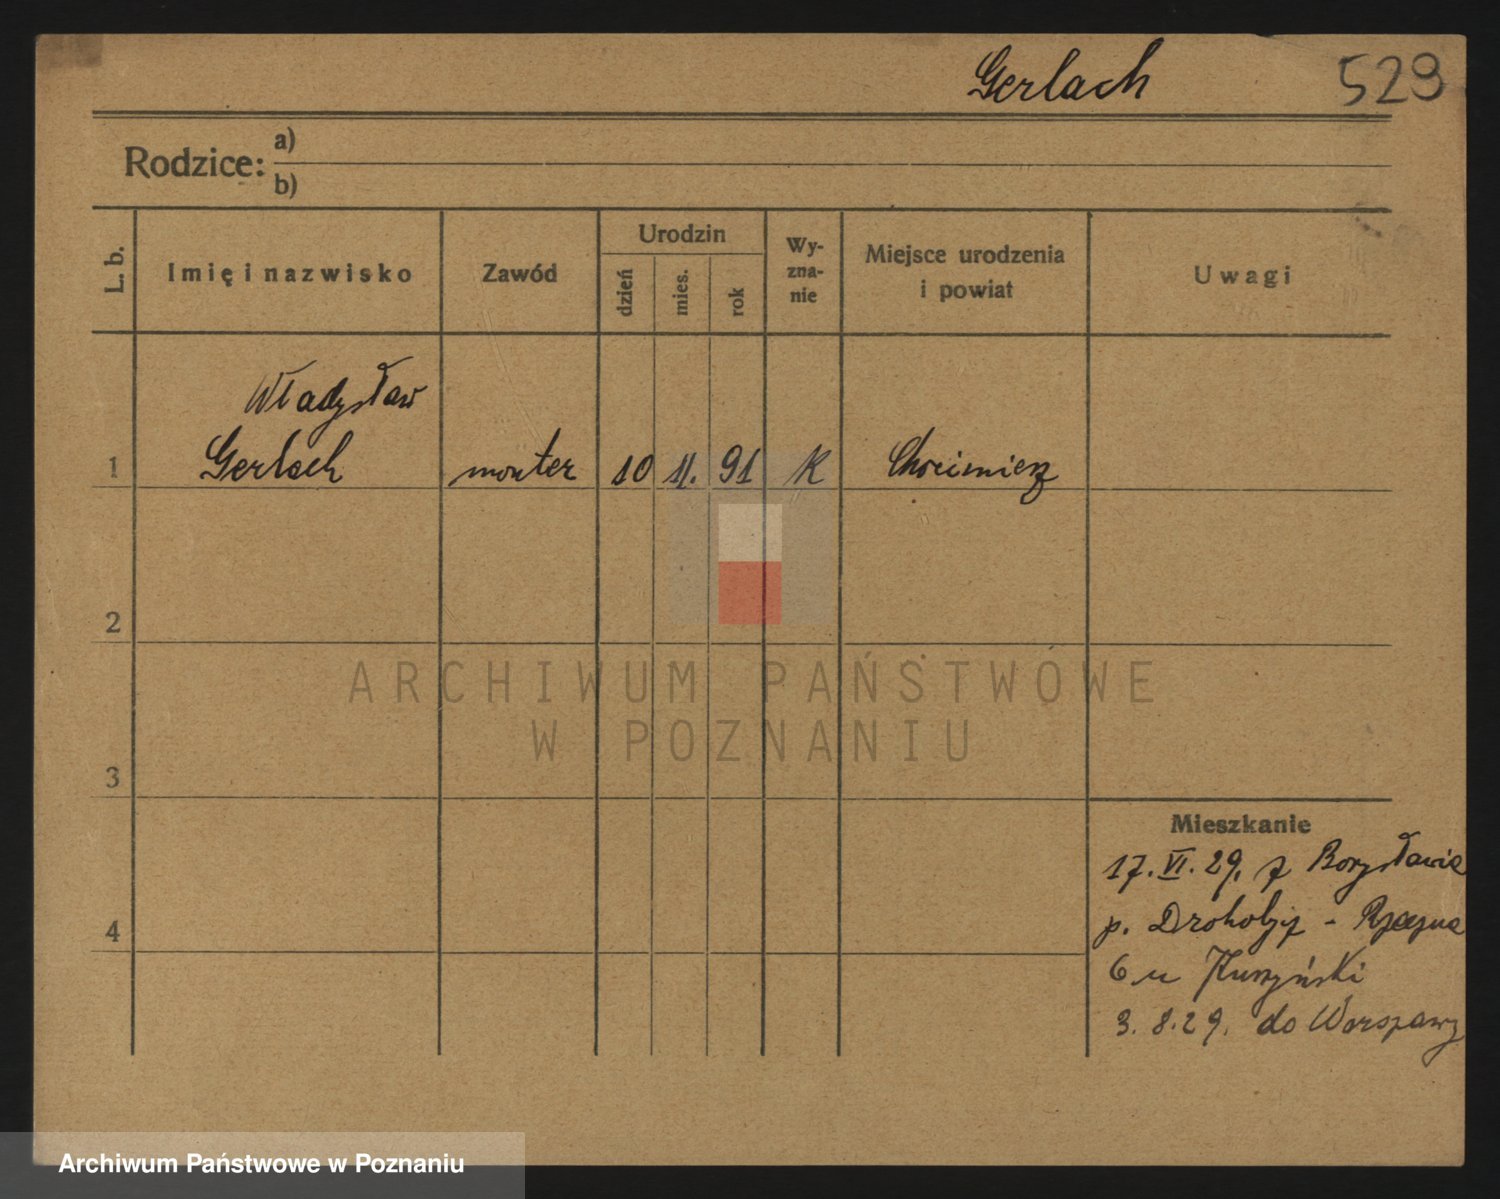 Gerlach 529
Rodzice: a)
b)
L. b. Imię i nazwisko Zawód Urodzin dzień mies. rok Wy-zna-nie Miejsce urodzenia i powiat Uwagi
Władysław
1 Gerlach monter 10 11. 91 K
2
3
4
Mieszkanie
17. VI. 29. z Borysławia
p. Drohobycz -
6 u
3. 8. 29. do Warszawy
ARCHIWUM PAŃSTWOWE
W POZNANIU
Archiwum Państwowe w Poznaniu